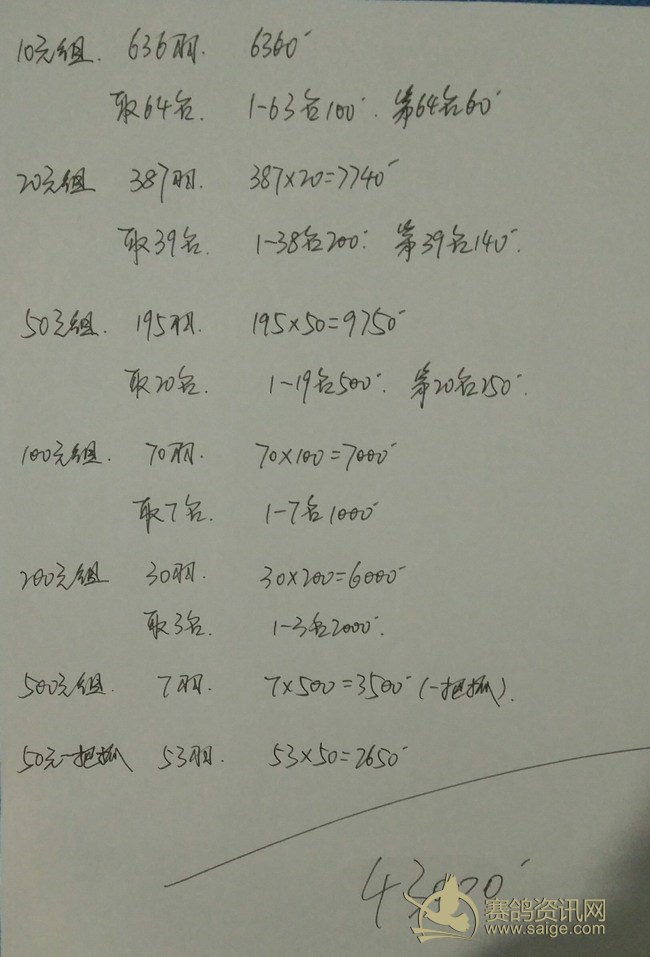 10元组. 636羽. 6360
取64名. 1-63名100. 第64名60
20元组 387羽. 387×20=7740
取39名. 1-38名200. 第39名140.
50元组. 195羽. 195×50=9750
取20名. 1-19名500. 第20名250.
100元组. 70羽. 70×100=7000
取7名. 1-7名1000
200元组 30羽. 30×200=6000
取3名. 1-3名2000.
500元组. 7羽. 7×500=3500 (一把抓).
50元一把抓 53羽. 53×50=2650
赛鸽资讯网
www.saige.com